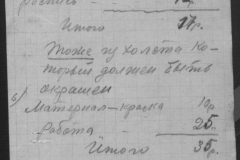 роспись -
Итого 17р.
Тоже из холста ко-
торый должен быть
окрашен
в) Материал-краска 10р
работа - 25.
Итого 35р.